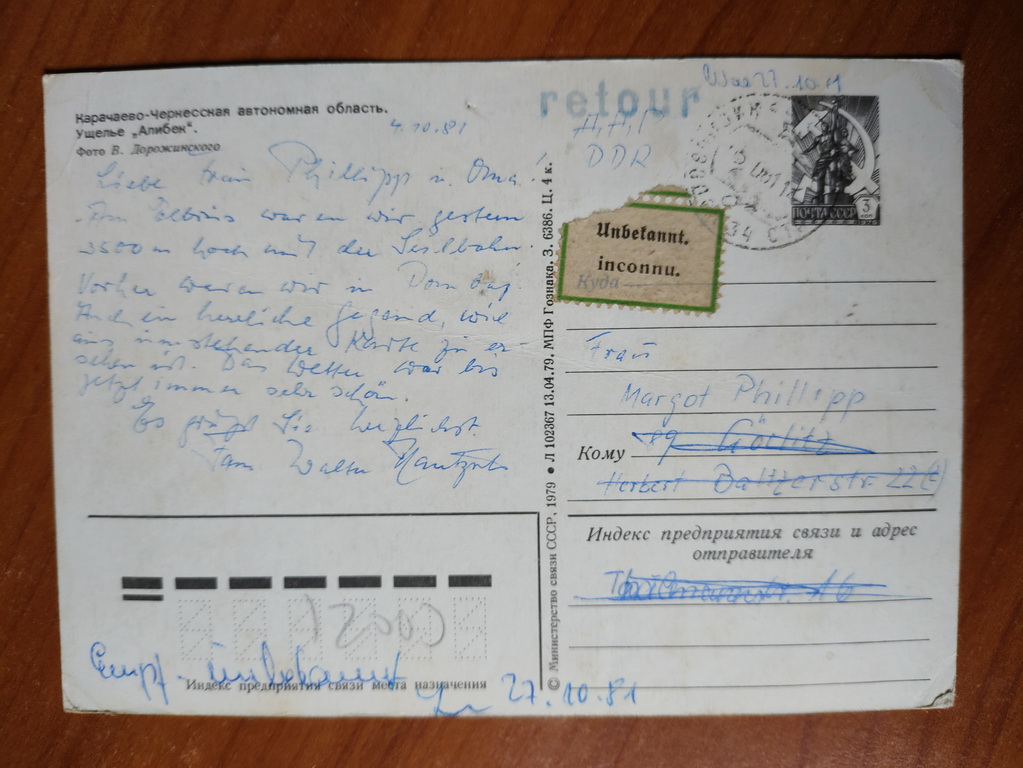 Карачаево-Черкесская автономная область.
Ущелье „Алибек“.
Фото В. Дорожинского
4.10.81
Liebe Frau Phillipp u. Oma!
Am Elbrus waren wir gestern
3500 m hoch mit der Seilbahn.
Vorher waren wir in Dombaj.
Auch ein herrliche Gegend, wie
aus umstehender Karte zu er-
sehen ist. Das Wetter war bis
jetzt immer sehr schön.
Es grüßt Sie herzlichst
Fam Walter
retour
27.10.81
DDR
ПОЧТА СССР
3
Unbekannt.
inconnu.
Куда
Frau
Margot Phillipp
Кому
89 Görlitz
Herbert Baltzerstr. 22
Индекс предприятия связи и адрес
отправителя
16
© Министерство связи СССР, 1979 ● Л 102367 13.04.79. МПФ Гознака. З. 6386. Ц. 4 к.
Empf. unbekannt
Индекс предприятия связи места назначения
27.10.81